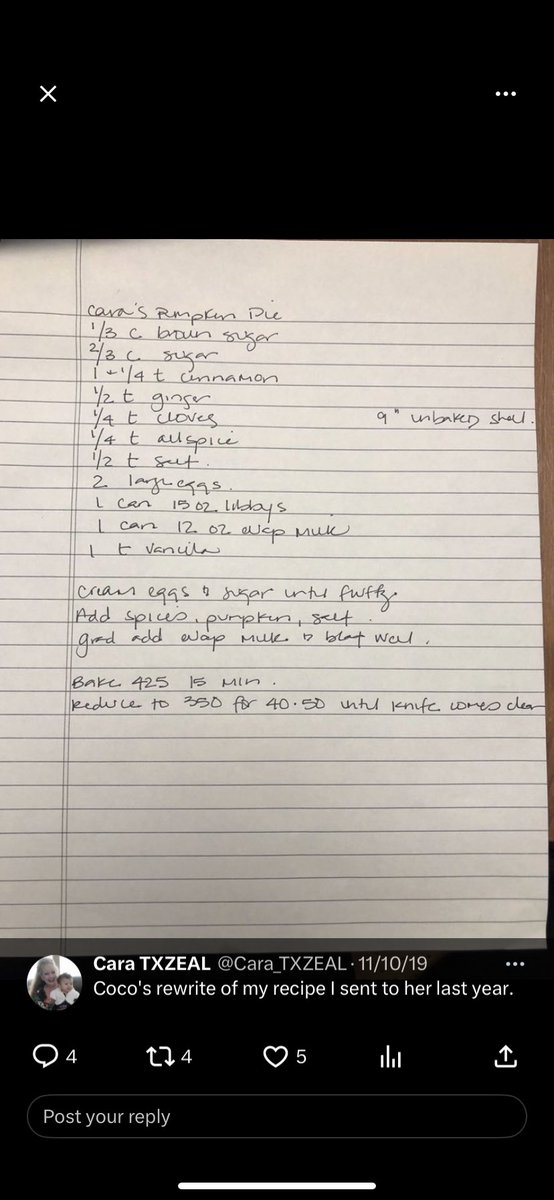 Cara's Pumpkin Pie
1/3 c. brown sugar
2/3 c. sugar
1 - 1/4 t cinnamon
1/2 t ginger
1/4 t cloves
9" unbaked shell.
1/4 t allspice
1/2 t salt.
2 large eggs.
1 can 15 oz libbys
1 can 12 oz evap milk
1 t vanilla
cream eggs & sugar until fluffy.
Add spices, pumpkin, salt.
grad add evap milk & beat well.
Bake 425 15 min.
Reduce to 350 for 40-50 until knife comes clean
Cara TXZEAL @Cara_TXZEAL · 11/10/19
Coco's rewrite of my recipe I sent to her last year.
4 4 5
Post your reply